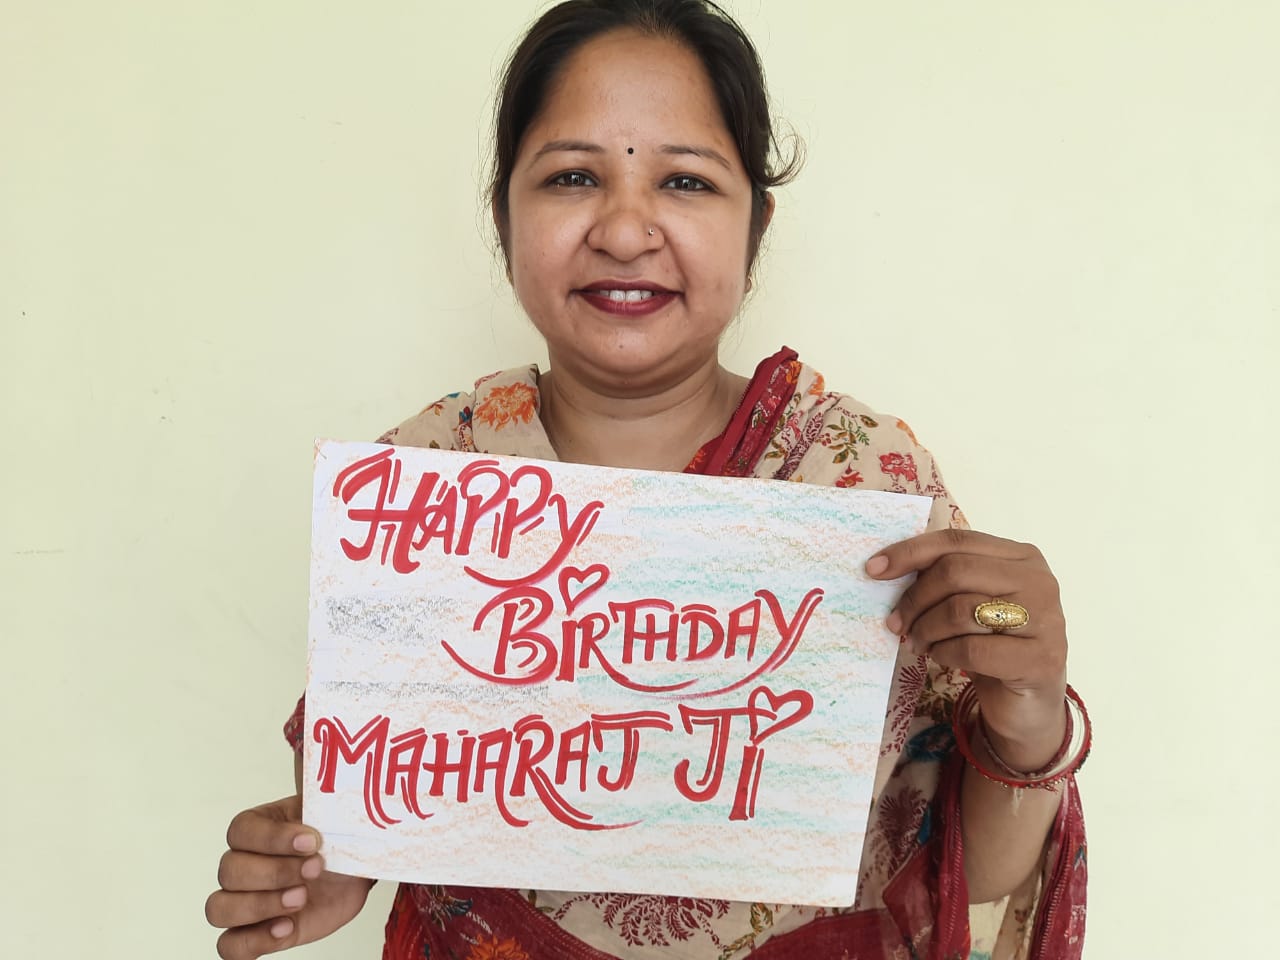 HAPPY
BIRTHDAY
MAHARAJ JI